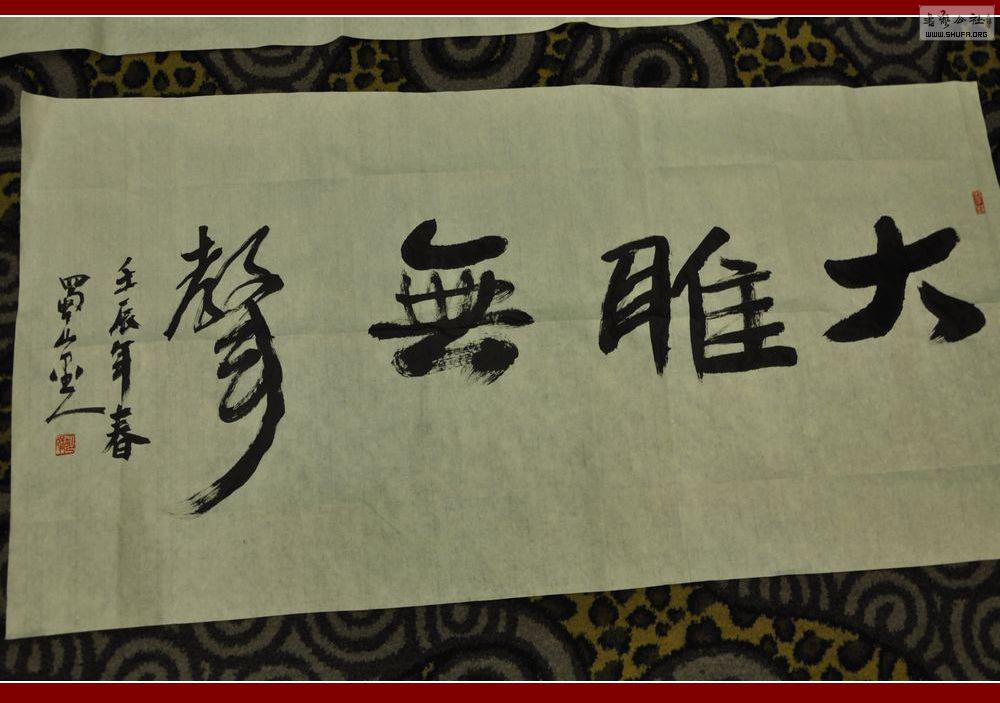 大雅無聲
壬辰年春
蜀山墨人
書藝公社
WWW.SHUFA.ORG